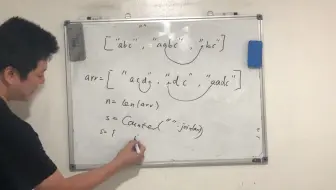 ""
["abc", "aabc", "bc"]
arr = ["acd", "dc", "aadc"]
n = len(arr)
s = Counter("".join(
s =